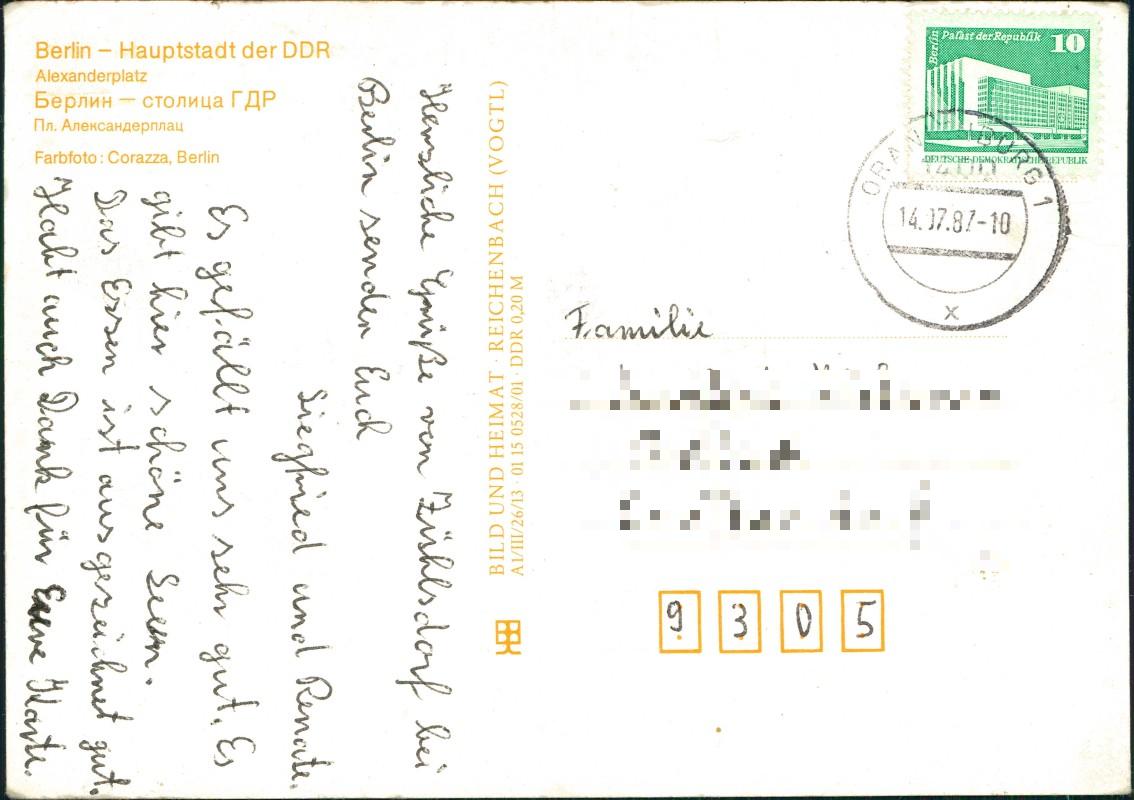 Berlin – Hauptstadt der DDR
Alexanderplatz
Берлин — столица ГДР
Пл. Александерплац
Farbfoto: Corazza, Berlin
Herzliche Grüße von Zühlsdorf bei
Berlin senden Euch
Siegfried und Renate.
Es gefällt uns sehr gut. Es
gibt hier schöne Seen.
Das Essen ist ausgezeichnet gut.
Habt auch Dank für Eure Karte.
BILD UND HEIMAT · REICHENBACH (VOGTL)
A1/III/26/13 · 01 15 0528/01 · DDR 0,20 M
Berlin Palast der Republik 10
DEUTSCHE DEMOKRATISCHE REPUBLIK
ORANIENBURG 1
1400
14.07.87-10
x
Familie
9305